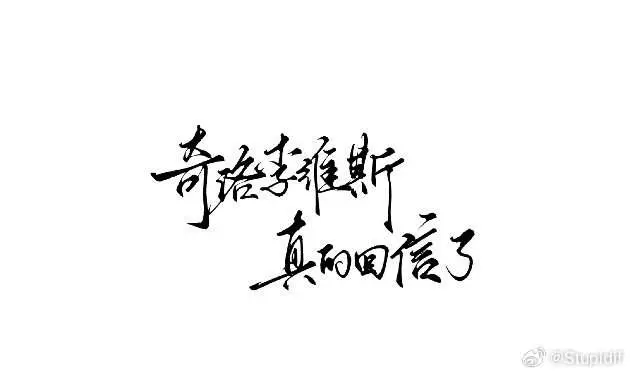 奇珞李维斯
真的回信了
@Stupidif